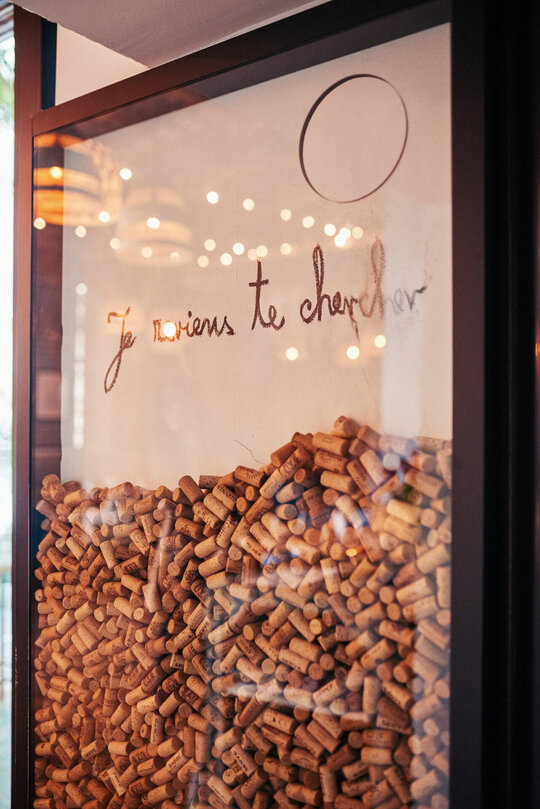 Je reviens te chercher